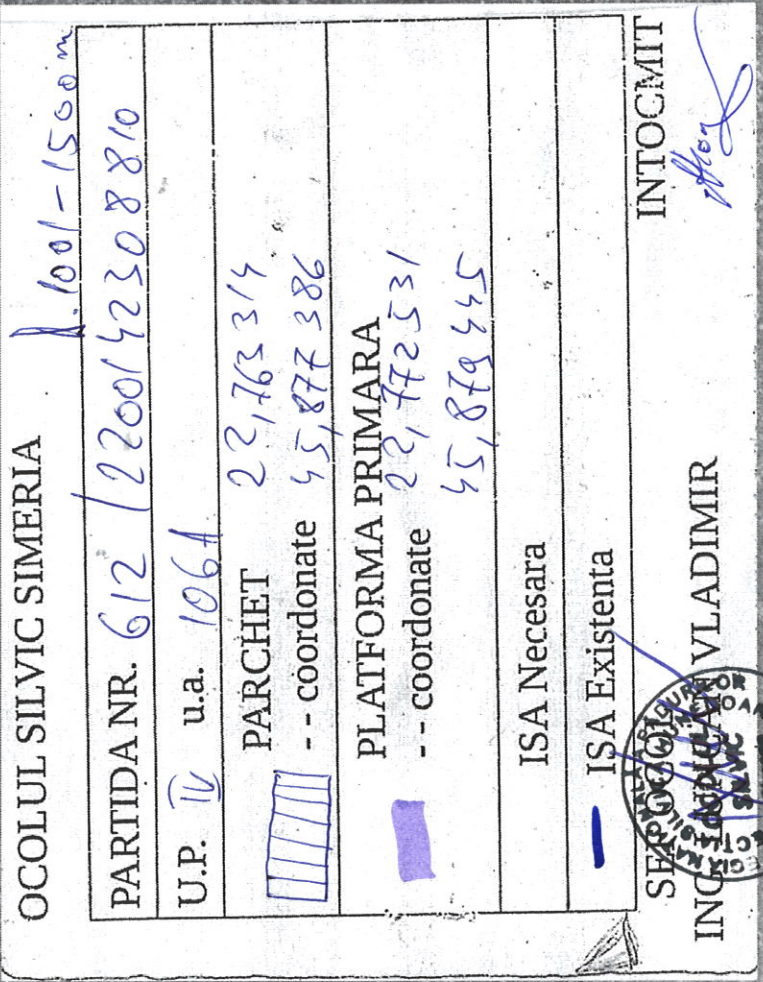 OCOLUL SILVIC SIMERIA
D. 1001-1500 m
PARTIDA NR. 612 / 2200142308810
U.P. IV u.a. 106A
PARCHET 22,763314
- - coordonate 45,877386
PLATFORMA PRIMARA
- - coordonate 22,772531
45,879445
ISA Necesara
ISA Existenta
SEF OCOL INTOCMIT
ING. VLADIMIR